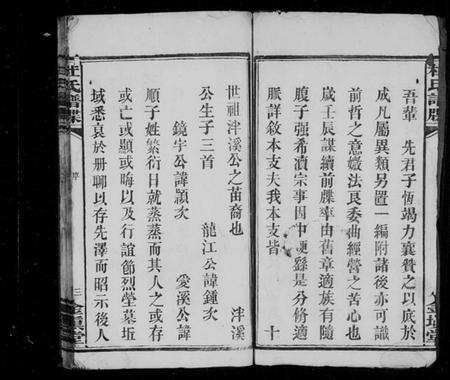 杜氏譜牒
吾輩 先君子恒竭力襄贊之以底於
成凡屬異類另置一編附諸後亦可識
前哲之意媺法良委曲經營之苦心也
歲壬辰謀續前牒率由舊章適族有隨
腹子强希瀆宗事因中
縣是分脩適
脈詳敘本支夫我本支皆 十
世祖泮溪公之苗裔也 泮溪
公生子三首 龍江公諱鍾次
鏡宇公諱頴次 愛溪公諱
順子姓繁衍日就蒸蒸而其人之或存
或亡或顯或晦以及行誼節烈塋墓坵
域悉裒於册聊以存先澤而昭示後人
杜氏譜牒
序
三